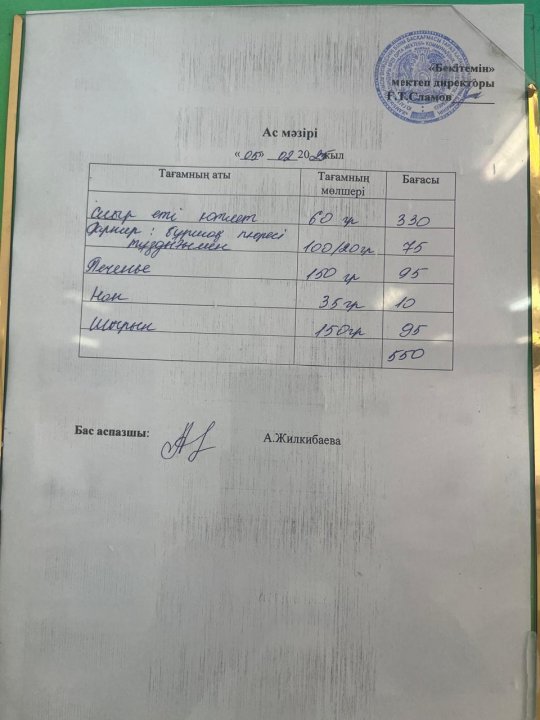 «Бекітемін»
мектеп директоры
Г.Т.Сламов
Ас мәзірі
«05» 02 2025 жыл
Тағамның аты Тағамның мөлшері Бағасы
Сиыр еті котлет 60 гр 330
Гарнир : бұршақ пюресі
тұздықпен 100/20гр 75
Печенье 150 гр 95
Нан 35гр 10
Шырын 150гр 95
550
Бас аспазшы: А.Жилкибаева